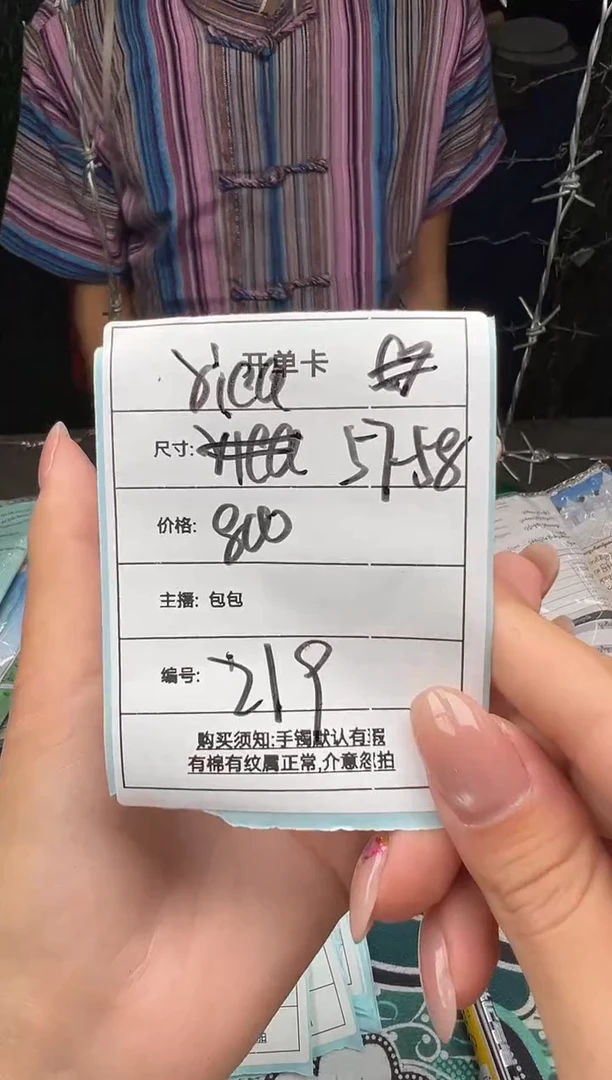 开单卡
rica
尺寸: 57-58
价格: 800
主播: 包包
编号: 219
购买须知:手镯默认有瑕
有棉有纹属正常,介意忽拍